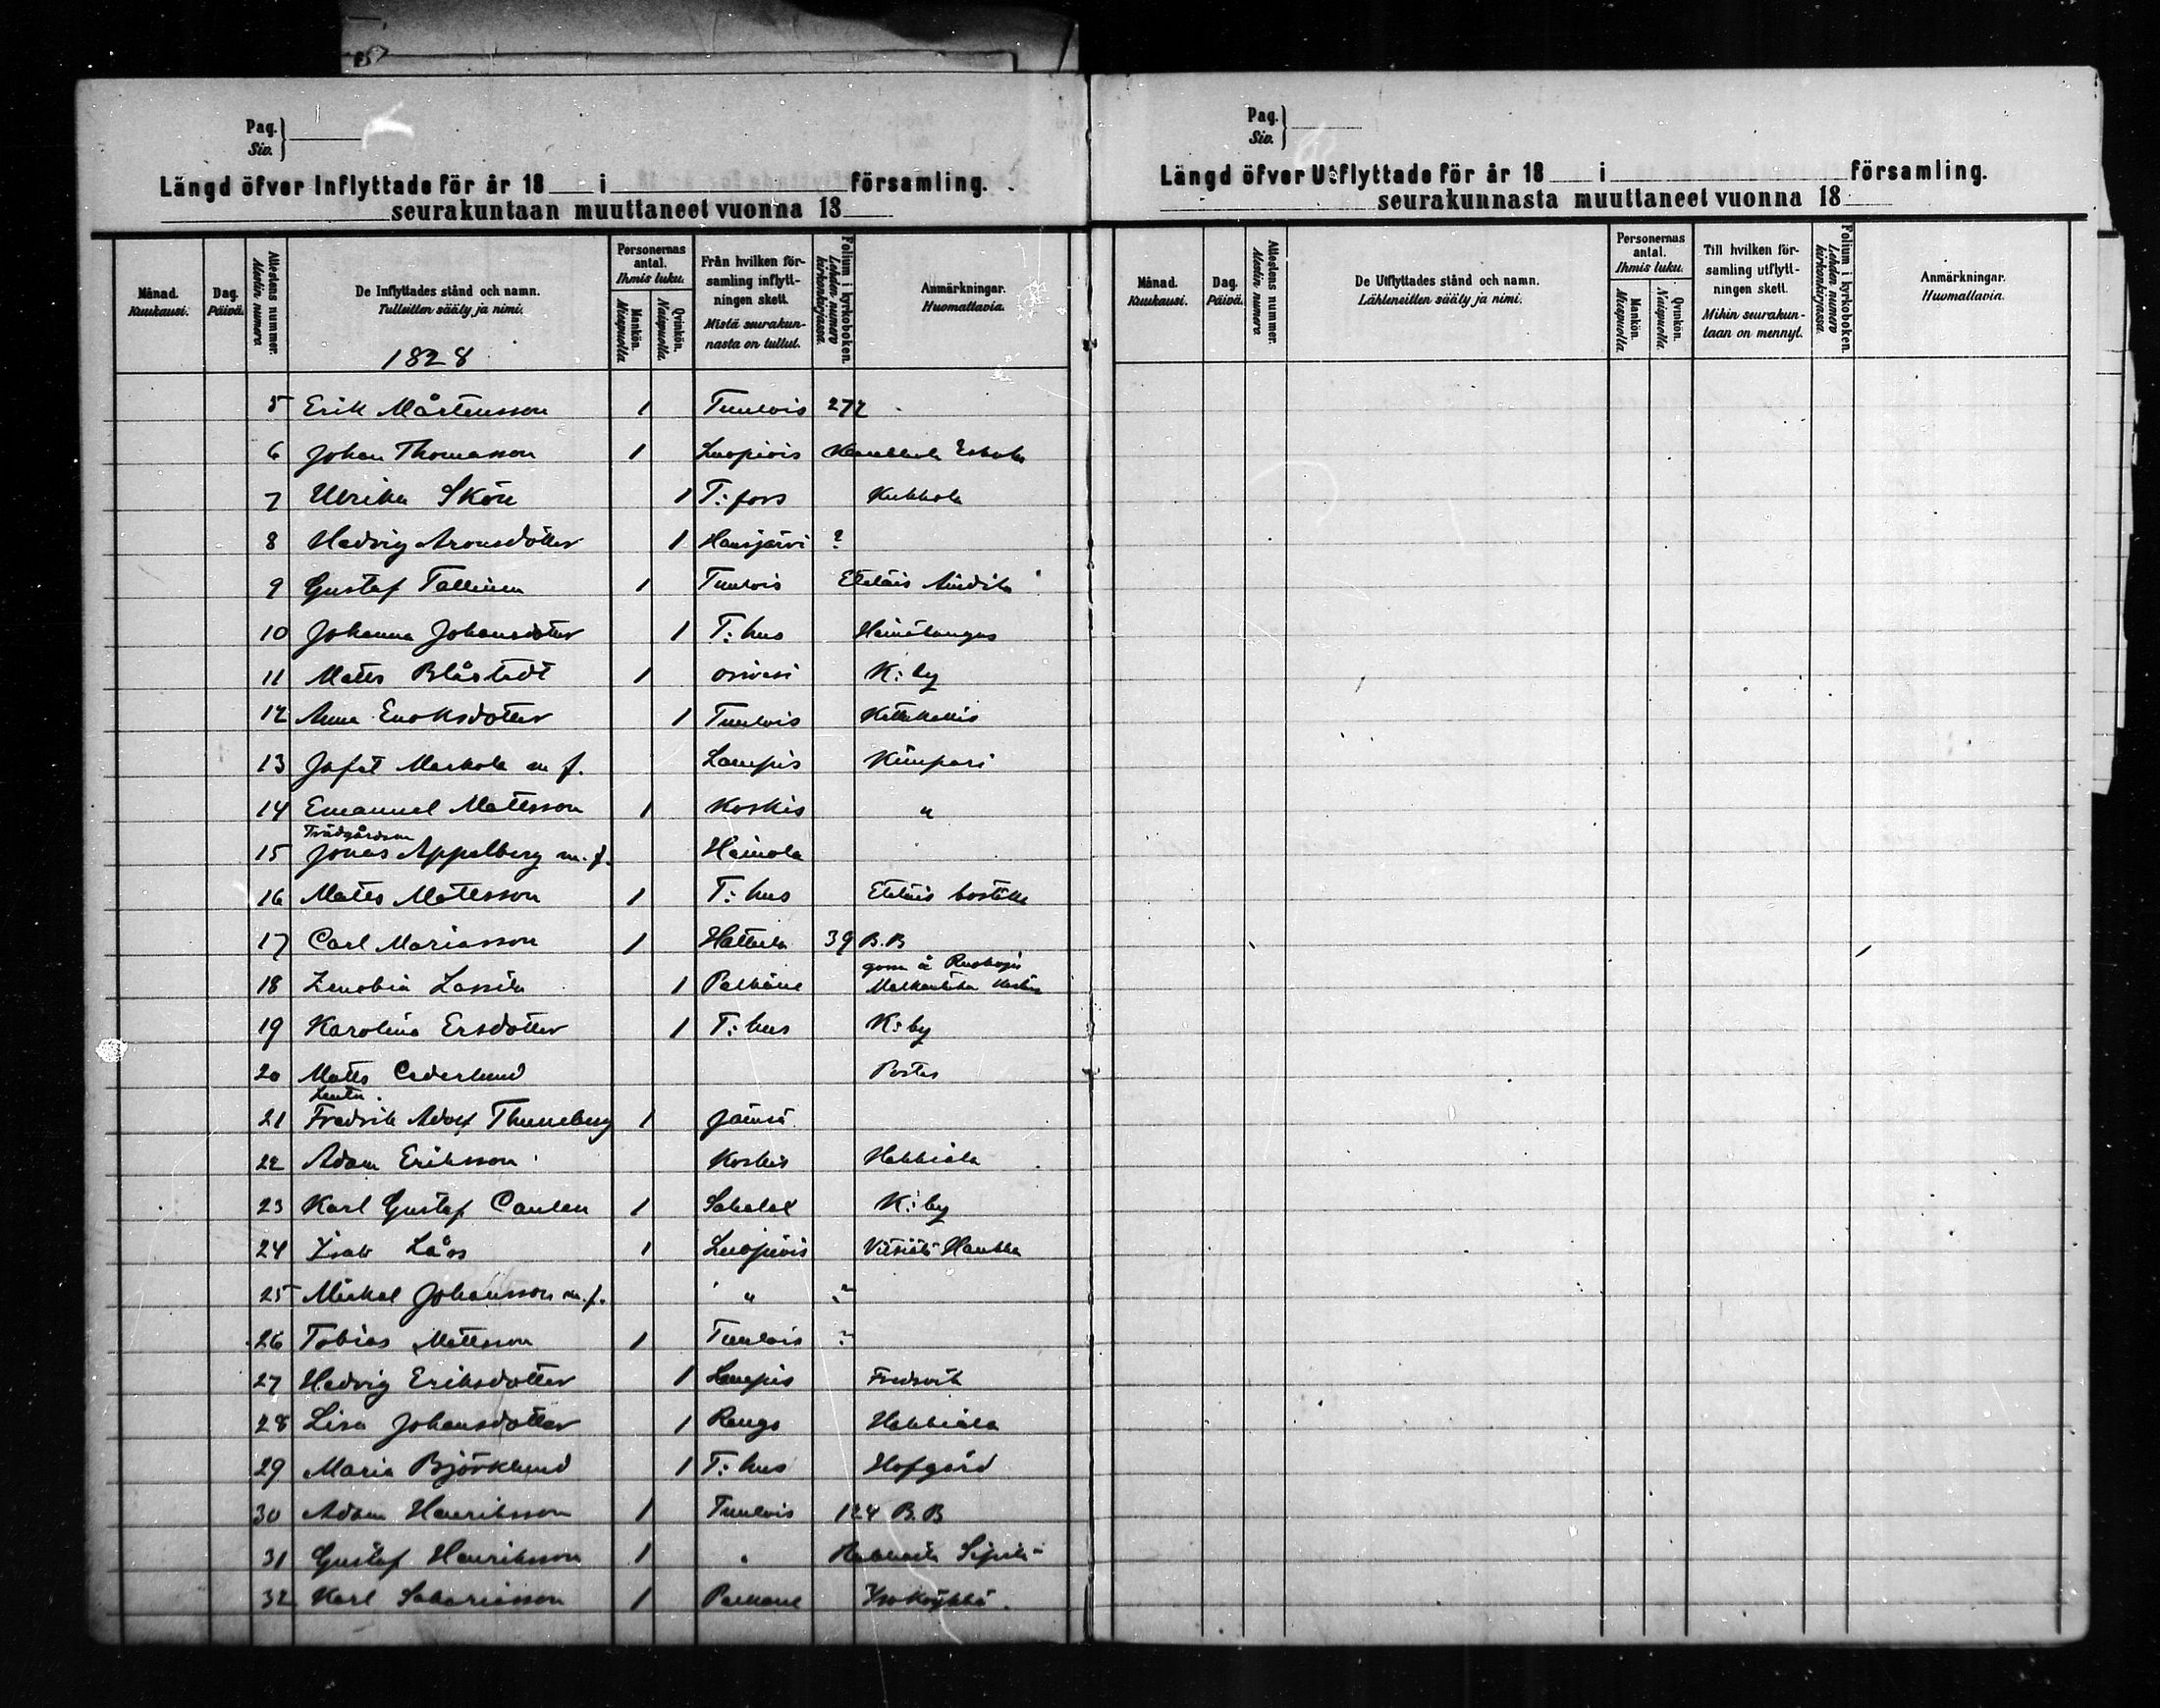 Pag.
Siv.
Längd öfver Inflyttade för år 18 i församling.
seurakuntaan muuttaneet vuonna 18
Månad. Kuukausi.
Dag. Päivä.
Attestens nummer. Alestin numero
De Inflyttades stånd och namn.
Tulleitten sääty ja nimi.
1828
Personernas antal.
Ihmis luku.
Mankön. Miespuolia
Qvinkön. Naispuolia.
Från hvilken församling inflyttningen skett.
Mistä seurakunnasta on tullut.
Folium i kyrkoboken. Lehden numero kirkonkirjassa.
Anmärkningar.
Huomattavia.
5 Erik Mårtensson 1 Tuulois 272
6 Johan Thomasson 1 Luopiois
7 Ulrika Skön 1 T:fors Kukkola
8 Hedvig Aronsdotter 1 Hausjärvi ?
9 Gustaf Tallium 1 Tuulois Eteläis
10 Johanna Johansdotter 1 T:hus
11 Matts Blåstedt 1 K:by
12 Anna Enoksdotter 1 Tuulois
13 Jafet Markola m f. Lampis
14 Emanuel Mattsson 1 Koskis "
Trädgårdsm
15 Jonas Appelberg m. f. Heinola
16 Matts Mattsson 1 T:hus Eteläis boställe
17 Carl Mariasson 1 Hattula 39 B.B
18 Zenobia Lassila 1 Palkäne
19 Karolina Ersdotter 1 T:hus K:by
20 Matts Cederlund
21 Fredrik Adolf Thuneberg 1 Jämsä
22 Adam Eriksson Koskis Hakkiala
23 Karl Gustaf 1 Sahalax K:by
24 Isak Låås 1 Luopiois
25 Mickel Johansson m. f. " "
26 Tobias Mattsson 1 Tuulois
27 Hedvig Eriksdotter 1 Lampis Fredrik
28 Lisa Johansdotter 1 Rengo Hakkiala
29 Maria Björklund 1 T:hus Hofgård
30 Adam Henriksson 1 Tuulois 124 B.B
31 Gustaf Henriksson 1 " Hakkiala
32 Karl Sakariasson 1 Palkane
Pag.
Siv.
Längd öfver Utflyttade för år 18 i församling.
seurakunnasta muuttaneet vuonna 18
Månad. Kuukausi.
Dag. Päivä.
Attestens nummer. Alestin numero
De Utflyttades stånd och namn.
Lähteneitten sääty ja nimi.
Personernas antal.
Ihmis luku.
Mankön. Miespuolia
Qvinkön. Naispuolia.
Till hvilken församling utflyttningen skett.
Mihin seurakuntaan on mennyt.
Folium i kyrkoboken. Lehden numero kirkonkirjassa.
Anmärkningar.
Huomattavia.